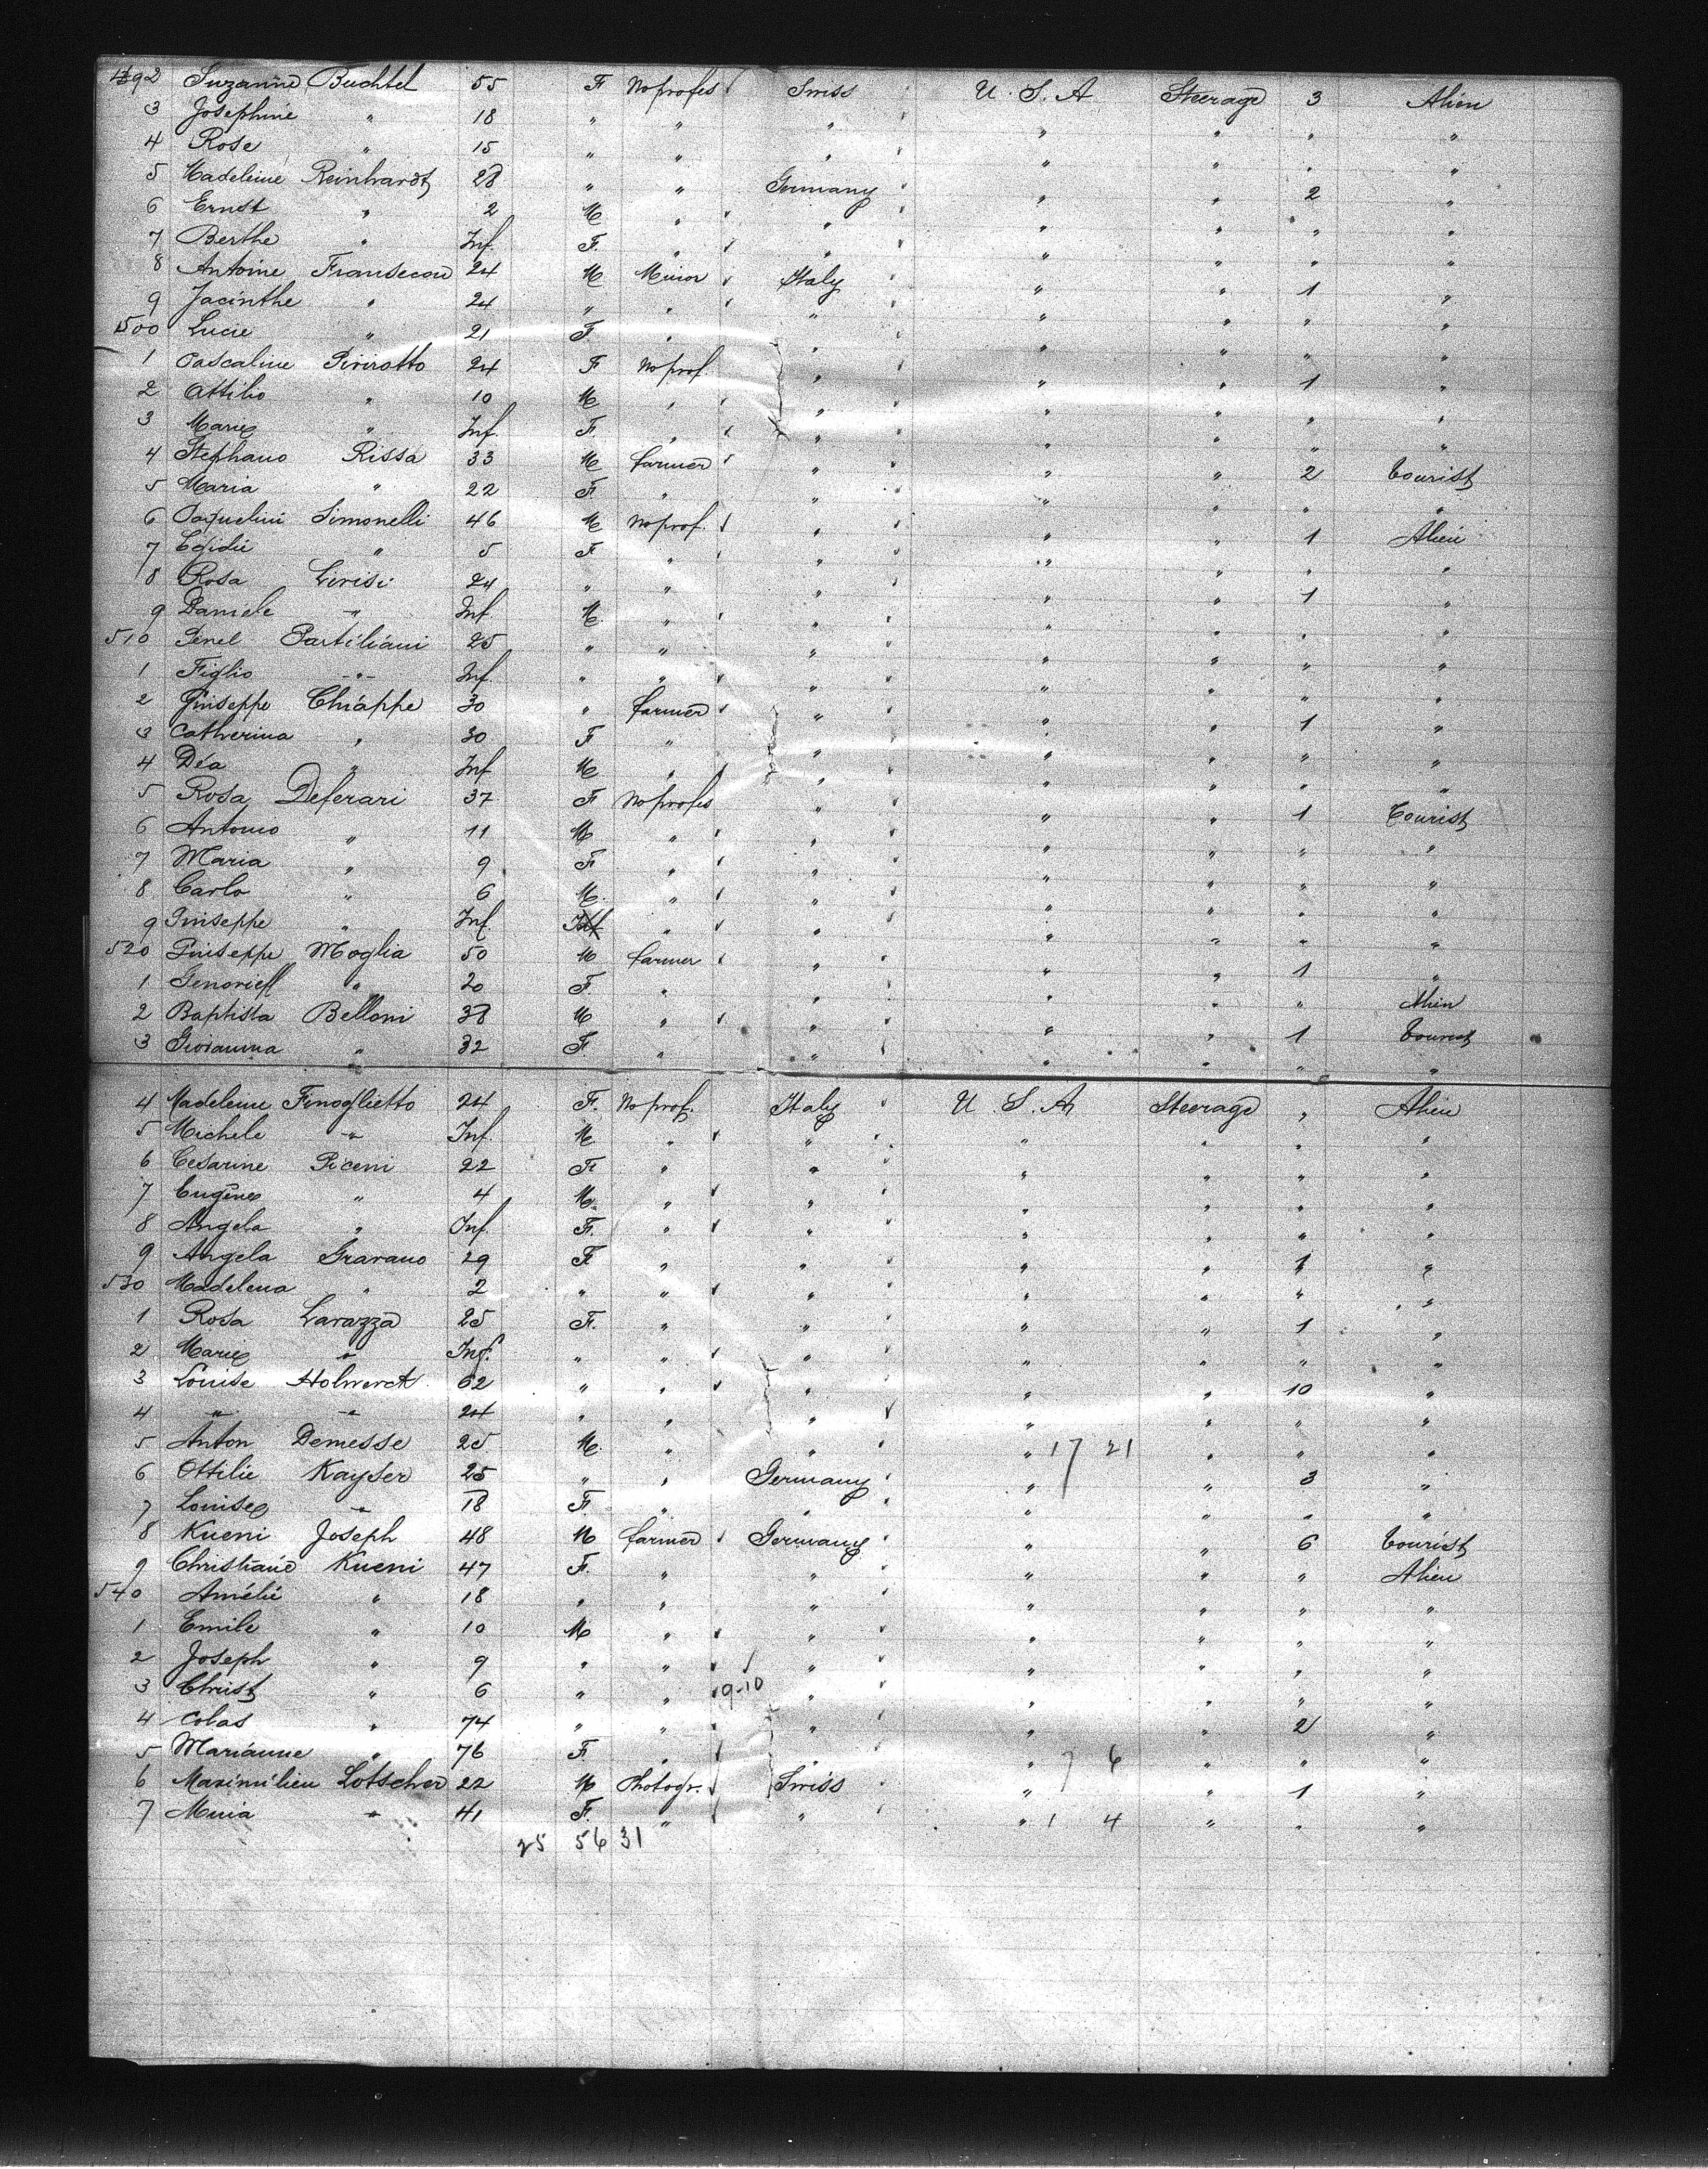 492 Suzanne Buchtel 55 F No profes Swiss U. S. A Steerage 3 Alien
3 Josephine " 18 " " " " " " "
4 Rose " 15 " " " " " " "
5 Madeleine Reinhardt 28 " " Germany " " 2 "
6 Ernst " 2 M " " " " " "
7 Berthe " Inf. F. " " " " " "
8 Antoine Fransecon 24 M Minor Italy " " 1 "
9 Jacinthe " 24 " " " " " " "
500 Lucie " 21 F. " " " " " "
1 Pascaline Pivirotto 24 F No prof " " " 1 "
2 Attilio " 10 M " " " " " "
3 Marie " Inf. F. " " " " " "
4 Stephano Rissa 33 M farmer " " " 2 tourist
5 Maria " 22 F. " " " " " "
6 Simonelli 46 M No prof. " " " 1 Alien
7 Egidie " 5 F " " " " " "
8 Rosa Livisi 24 " " " " " 1 "
9 Daniele " Inf M. " " " " " "
510 Penel Partiliani 25 " " " " " " "
1 Figlio " Inf. " " " " " " "
2 Giuseppe Chiappe 30 " farmer " " " 1 "
3 Catherina " 30 F " " " " " "
4 Dea " Inf M " " " " " "
5 Rosa Deferari 37 F No profes " " " 1 Tourist
6 Antonio " 11 M " " " " " "
7 Maria " 9 F " " " " " "
8 Carlo " 6 M. " " " " " "
9 Giuseppe " Inf. Inf " " " " " "
520 Giuseppe Moglia 50 M farmer " " " 1 "
1 " 20 F " " " " " Alien
2 Baptista Belloni 38 M " " " " 1 tourist
3 Giovanna " 32 F. " " " " " "
4 Madeleine Finoglietto 24 F. No prof. Italy U. S. A Steerage " Alien
5 Michele " Inf. M. " " " " " "
6 Cesarine Piceni 22 F. " " " " " "
7 Eugène " 4 M. " " " " " "
8 Angela " Inf. F. " " " " " "
9 Angela Gravano 29 F " " " " 1 "
530 Madelena " 2 " " " " " " "
1 Rosa Lavazza 25 F. " " " " 1 "
2 Marie " Inf. " " " " " " "
3 Louise Holwerck 62 " " " " " 10 "
4 " " 24 " " " " " " "
5 Anton Demesse 25 M. " " " 17 21 " " "
6 Ottilie Kayser 25 " " Germany " " 3 "
7 Louise " 18 F. " " " " " "
8 Kueni Joseph 48 M farmer Germany " " 6 tourist
9 Christiane Kueni 47 F. " " " " " Alien
540 Amélie " 18 " " " " " " "
1 Emile " 10 M " " " " " "
2 Joseph " 9 " " " " " " "
3 Christ " 6 " " 9-10 " " " " "
4 Colas " 74 " " " " " 2 "
5 Marianne " 76 F. " " " 7 6 " " "
6 Maximilien Lotscher 22 M Photogr. Swiss " " 1 "
7 " 41 F. " " " 1 4 " " "
25 56 31